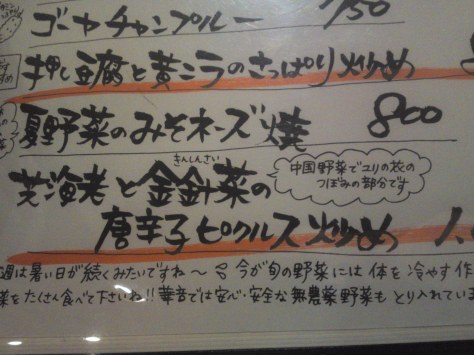 ゴーヤチャンプルー 750
押し豆腐と黄ニラのさっぱり炒め
夏野菜のみそチーズ焼 800
きんしんさい
芝海老と金針菜の
中国野菜でユリの花の
つぼみの部分です
唐辛子ピクルス炒め 1,
週は暑い日が続くみたいですね〜 今が旬の野菜には体を冷やす作
菜をたくさん食べて下さいね!! 華音では安心・安全な無農薬野菜もとり入れていま